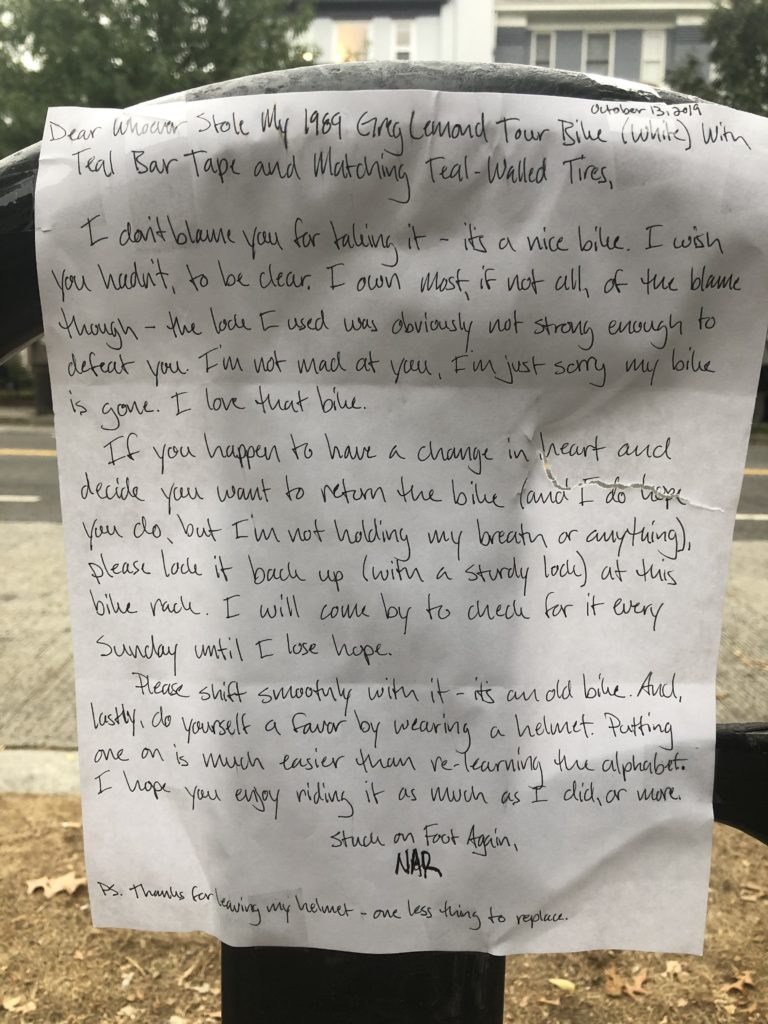 October 13, 2019
Dear Whoever Stole My 1989 Greg Lemond Tour Bike (White) With
Teal Bar Tape and Matching Teal-Walled Tires,
I don't blame you for taking it - it's a nice bike. I wish
you hadn't, to be clear. I own most, if not all, of the blame
though - the lock I used was obviously not strong enough to
defeat you. I'm not mad at you, I'm just sorry my bike
is gone. I love that bike.
If you happen to have a change in heart and
decide you want to return the bike (and I do hope
you do, but I'm not holding my breath or anything),
please lock it back up (with a sturdy lock) at this
bike rack. I will come by to check for it every
Sunday until I lose hope.
Please shift smoothly with it - it's an old bike. And,
lastly, do yourself a favor by wearing a helmet. Putting
one on is much easier than re-learning the alphabet.
I hope you enjoy riding it as much as I did, or more.
Stuck on Foot Again,
NAR
PS. Thanks for leaving my helmet - one less thing to replace.